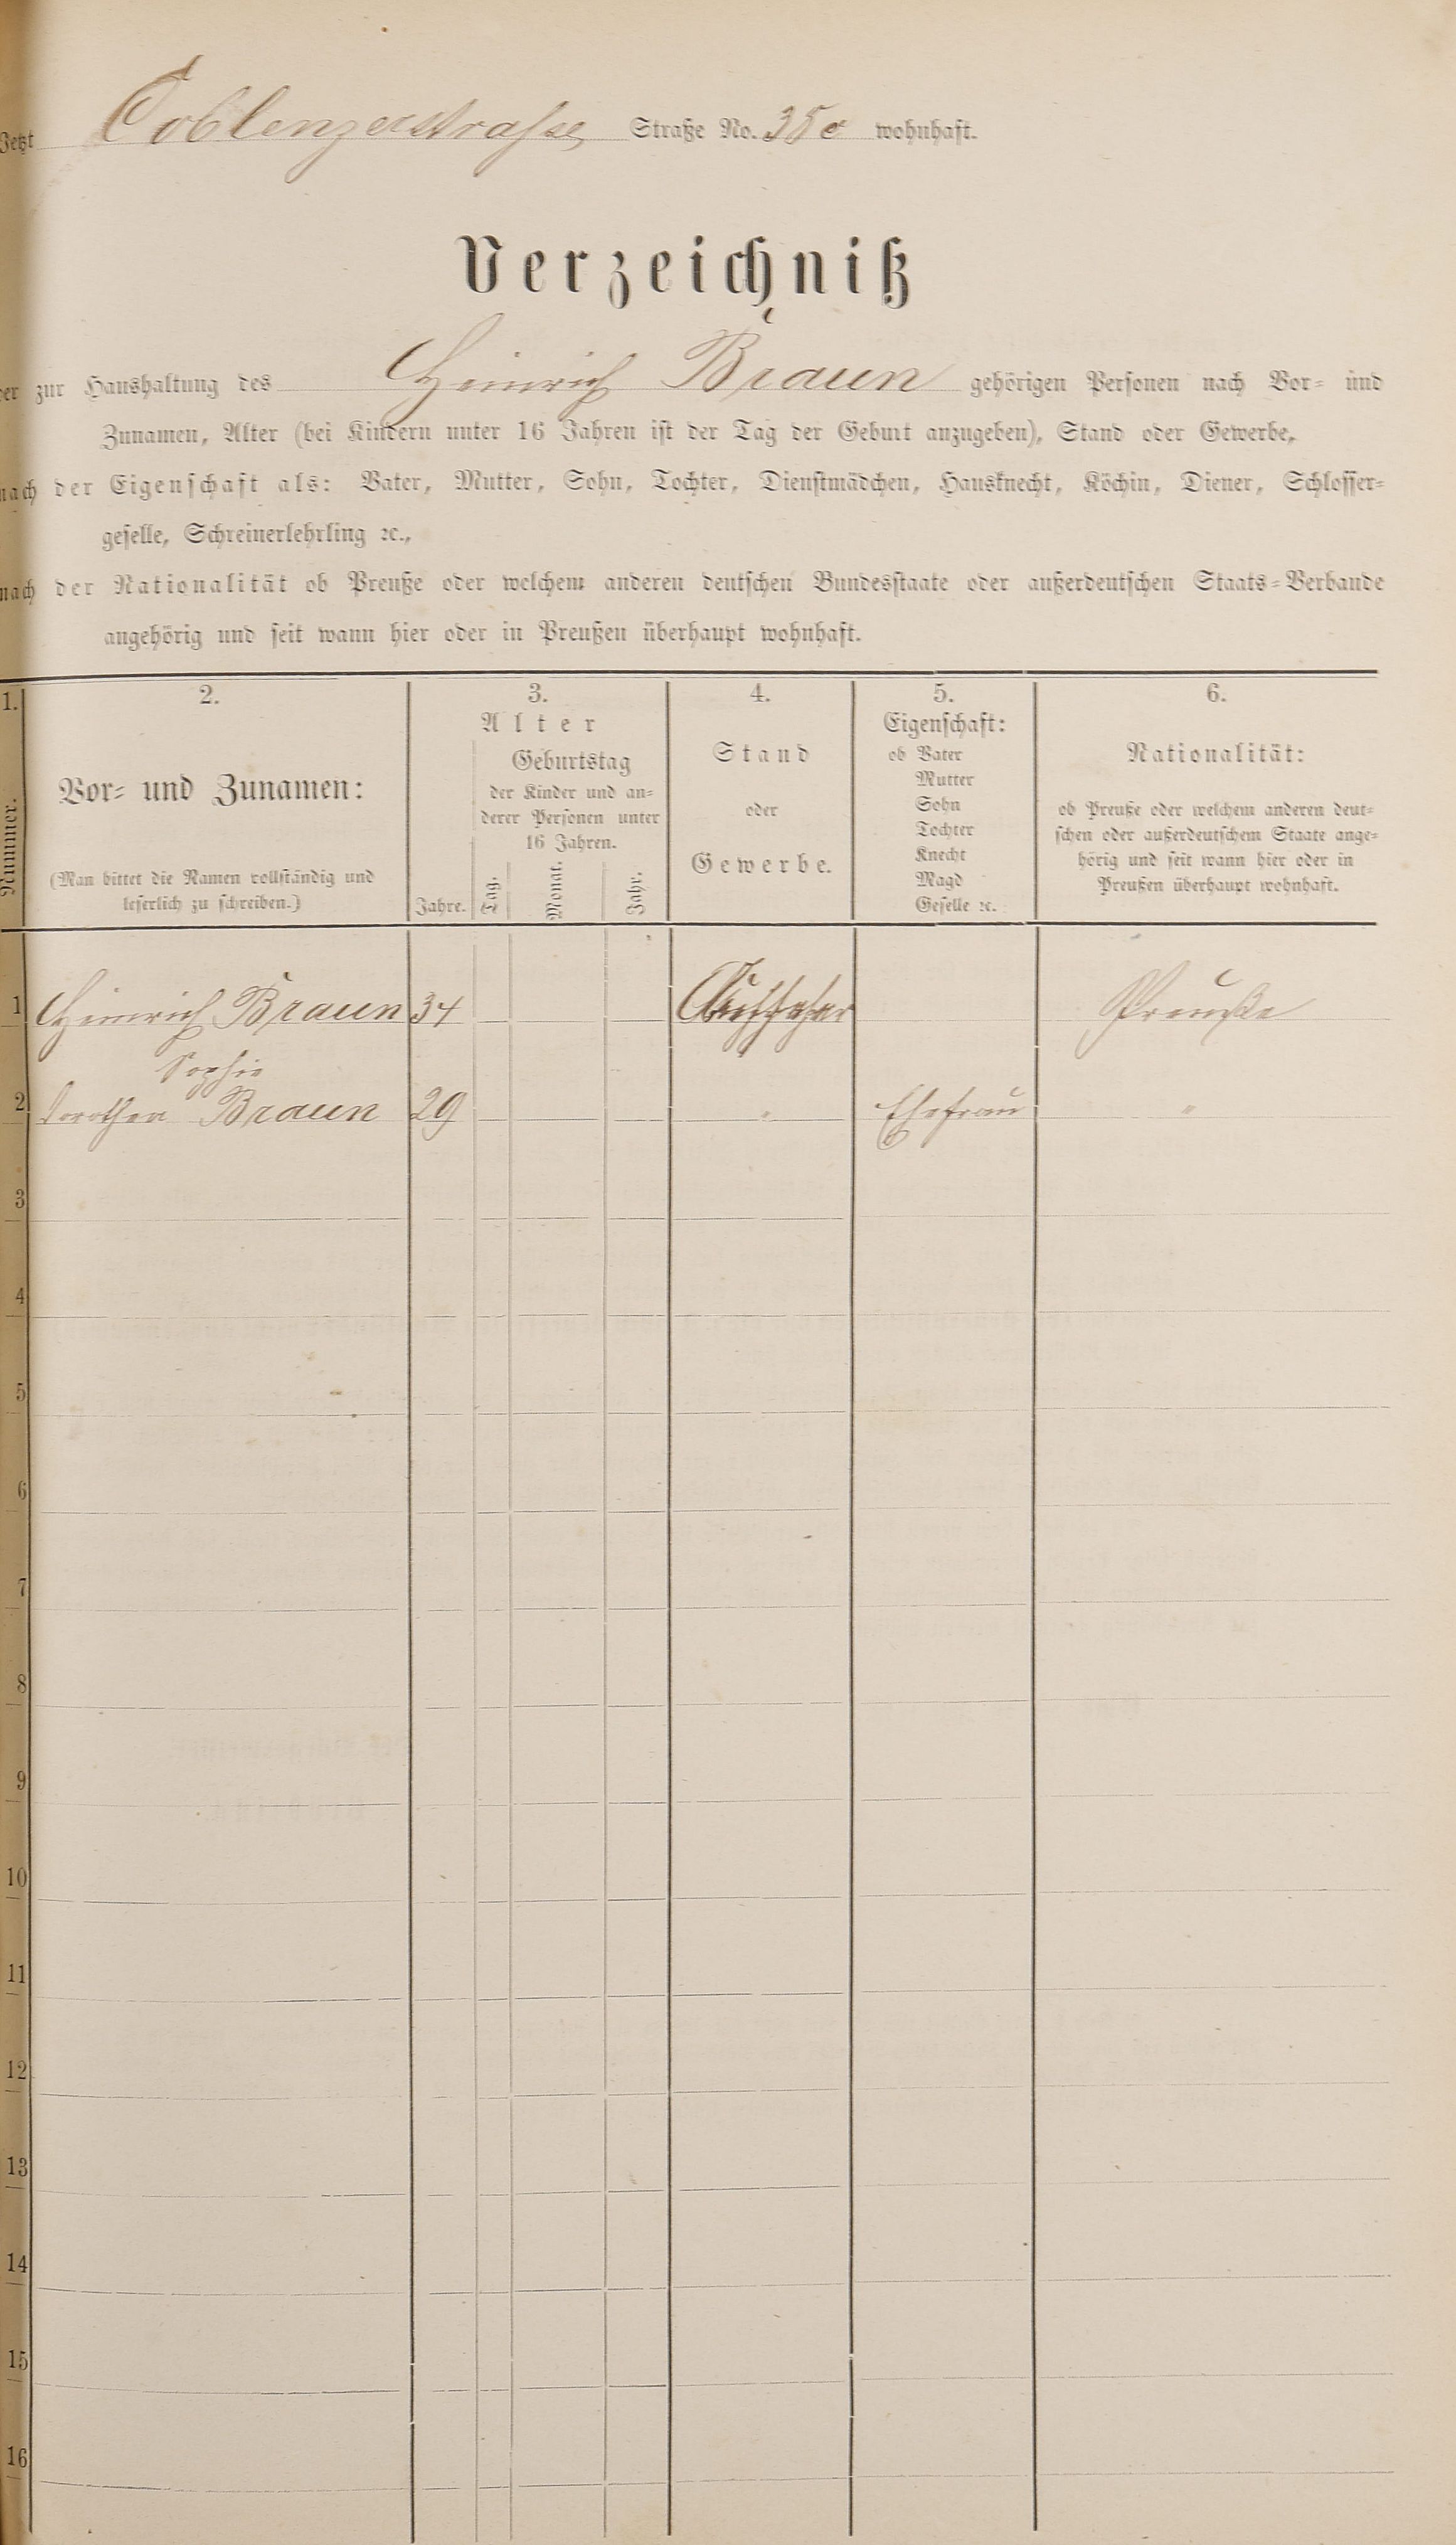 Jetzt Coblenzerstrasse Straße No. 35c wohnhaft.
Verzeichniß
der zur Haushaltung des Heinrich Braun gehörigen Personen nach Vor- und
Zunamen, Alter (bei Kindern unter 16 Jahren ist der Tag der Geburt anzugeben), Stand oder Gewerbe,
nach der Eigenschaft als: Vater, Mutter, Sohn, Tochter, Dienstmädchen, Hausknecht, Köchin, Diener, Schlosser-
geselle, Schreinerlehrling ꝛc.,
nach der Nationalität ob Preuße oder welchem anderen deutschen Bundesstaate oder außerdeutschen Staats-Verbande
angehörig und seit wann hier oder in Preußen überhaupt wohnhaft.
1.
Nummer.
2.
Vor- und Zunamen:
(Man bittet die Namen vollständig und
leserlich zu schreiben.)
3.
Alter
Jahre.
Geburtstag
der Kinder und an-
derer Personen unter
16 Jahren.
Tag. Monat. Jahr.
4.
Stand
oder
Gewerbe.
5.
Eigenschaft:
ob Vater
Mutter
Sohn
Tochter
Knecht
Magd
Geselle ꝛc.
6.
Nationalität:
ob Preuße oder welchem anderen deut-
schen oder außerdeutschem Staate ange-
hörig und seit wann hier oder in
Preußen überhaupt wohnhaft.
1 Heinrich Braun 34 Preuße
Sophie
2 Dorothea Braun 29 " Ehefrau "
3
4
5
6
7
8
9
10
11
12
13
14
15
16